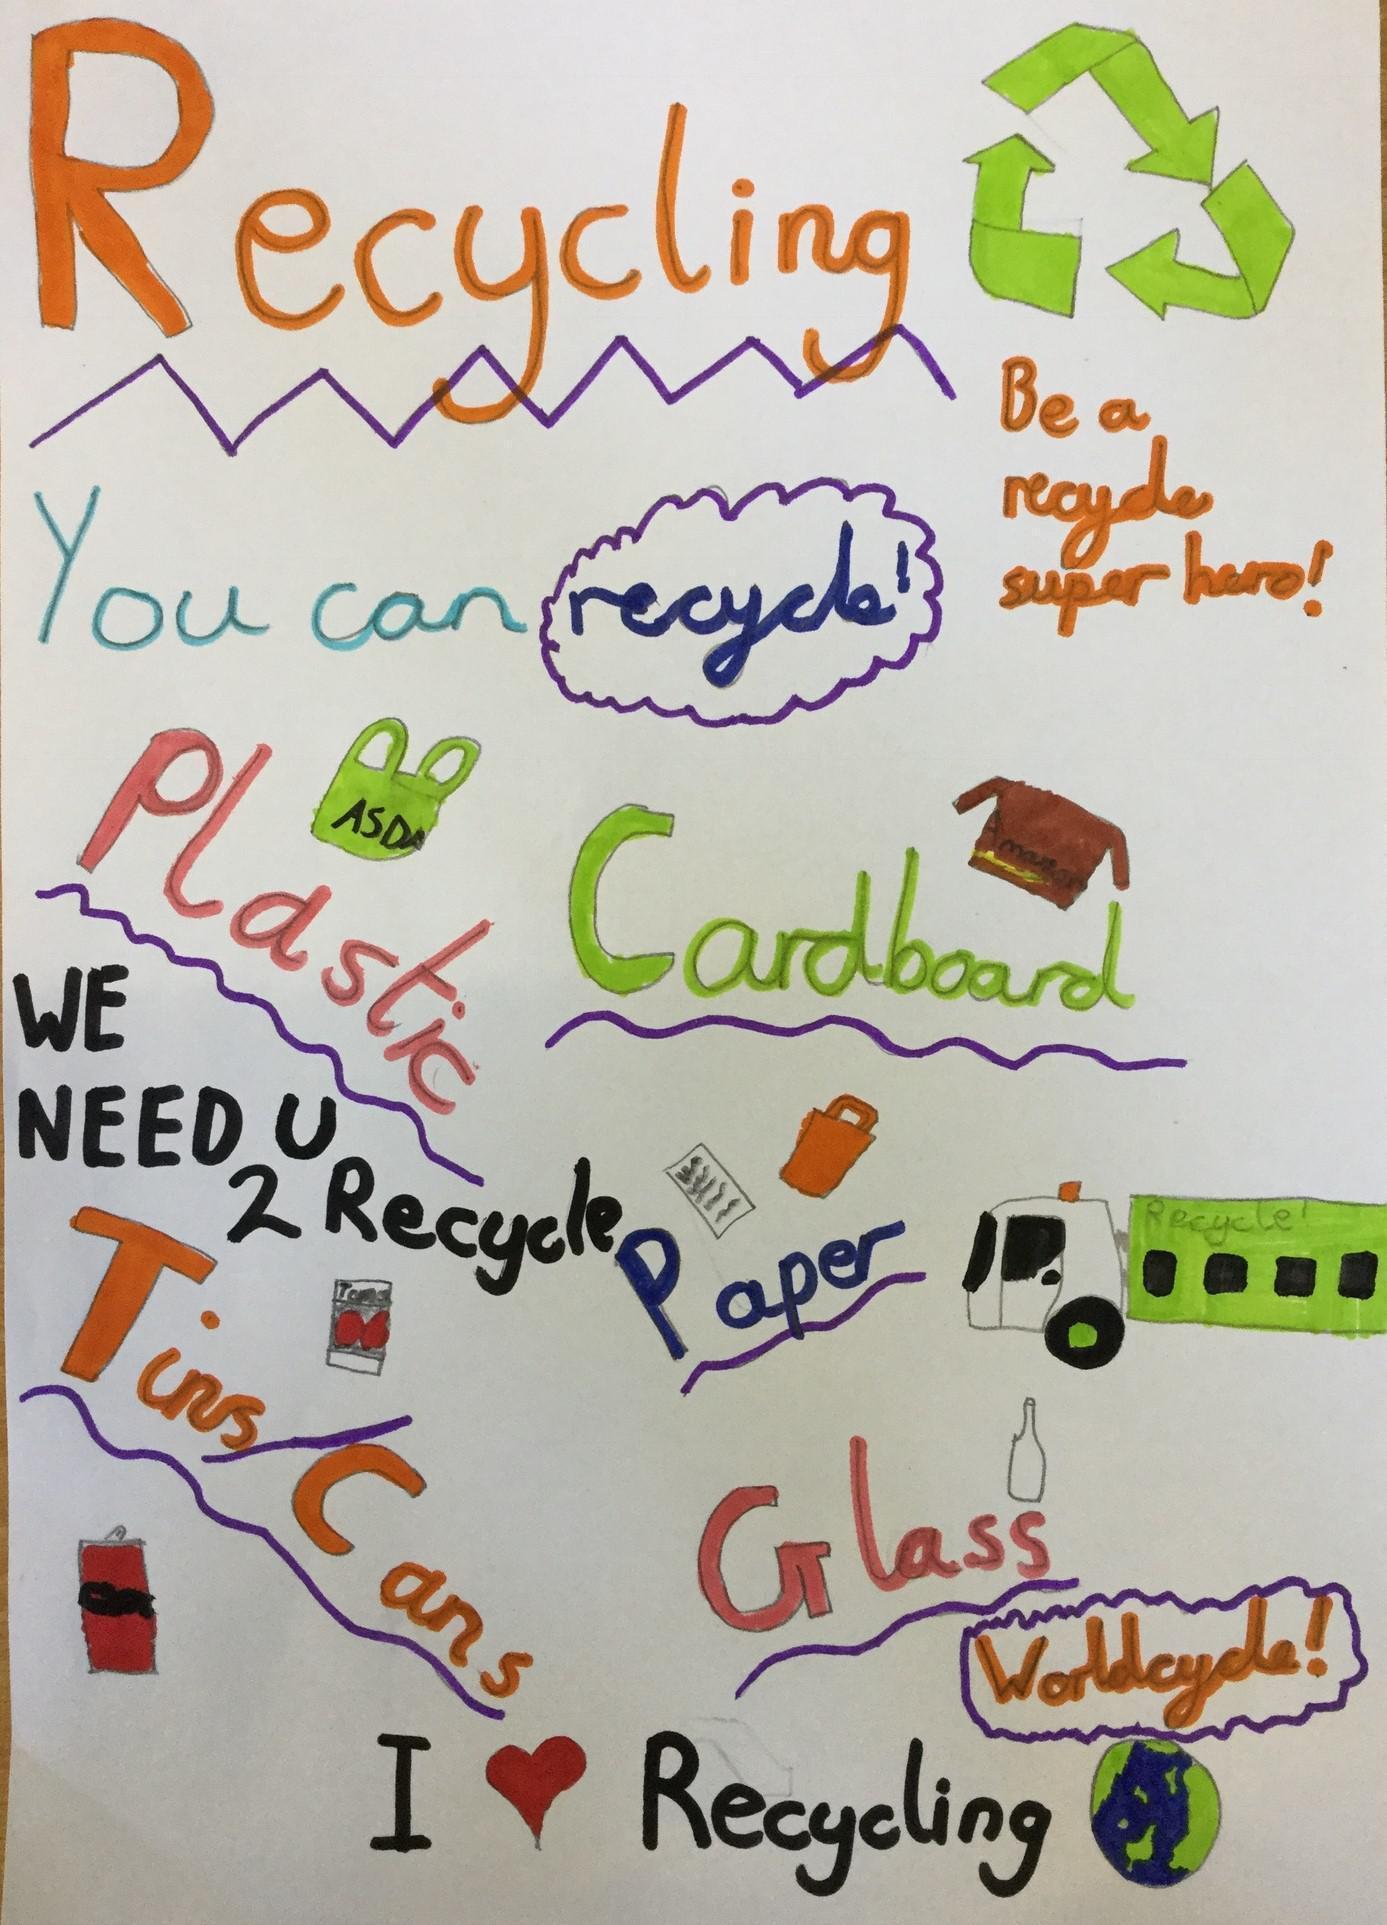 Recycling
Be a
recycle
super hero!
You can recycle!
Plastic
ASDA
Cardboard
Amazon
WE
NEED U
2 Recycle
Paper
Recycle!
Tins
Cans
Glass
Worldcycle!
I ♥ Recycling